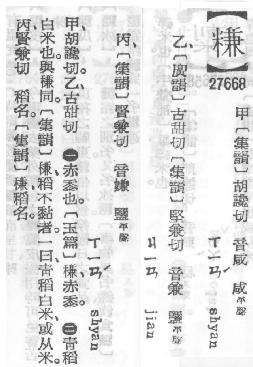 27668
甲、〔集韻〕胡讒切 音咸 咸平聲
ㄒㄧㄢˊ shyan
乙、〔廣韻〕古甜切〔集韻〕堅兼切 音兼 鹽平聲
ㄐㄧㄢ jian
丙、〔集韻〕賢兼切 音嫌 鹽平聲
ㄒㄧㄢˊ shyan
甲、胡讒切。乙、古甜切。㊀赤黍也。〔玉篇〕稴、赤黍。㊁青稻
白米也。與稴同。〔集韻〕稴、稻不黏者、一曰青稻白米、或从米。
丙、賢兼切。稻名。〔集韻〕稴、稻名。